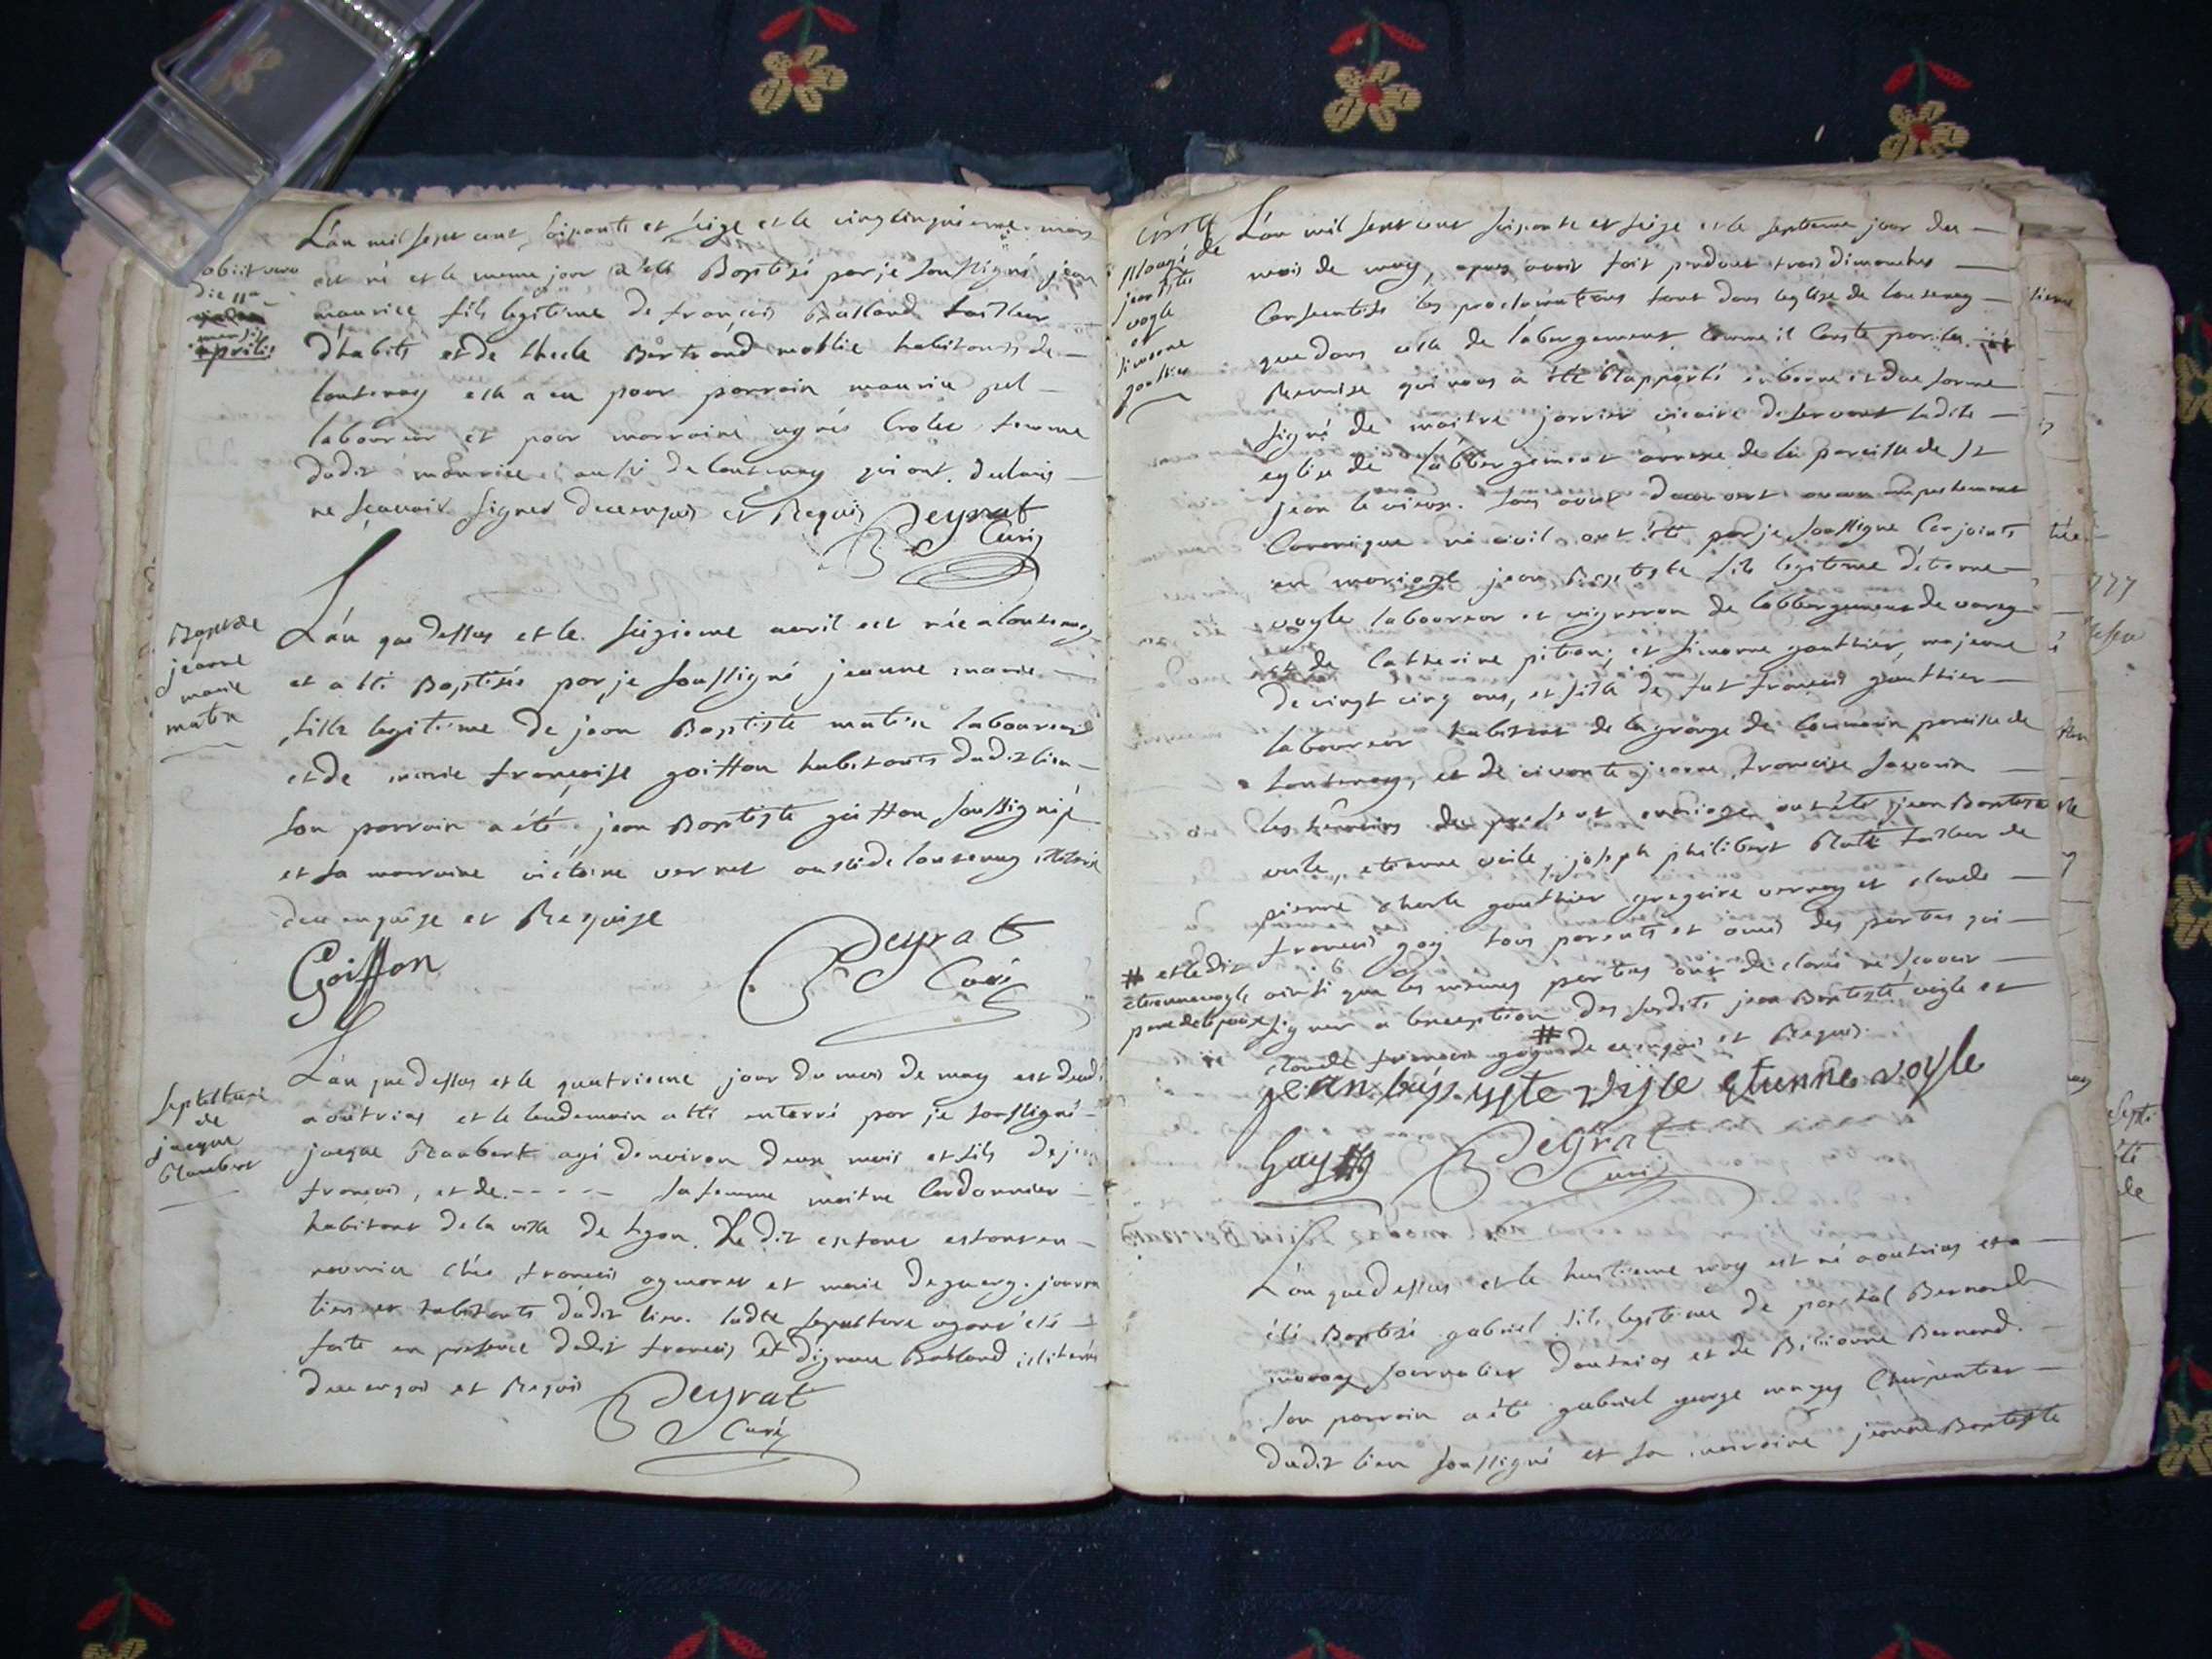 L'an mil sept cent soixante et seize et le vingt cinquieme mars
obiit vero
die 11a
aprilis
est né et le meme jour a été Baptisé par je soussigné jean
maurice fils legitime de françois Balland tailleur
d'habits et de Bertrand mariés habitants de
lantenay et a eu pour parrain maurice pel
laboureur et pour marraine agnés femme
dudit maurice aussi de lantenay qui ont declarés
ne sçavoir signer de ce enquis et Requis
Deyrat
Curé
Bapt de
jeanne
marie
matin
L'an que dessus et le seizieme avril est née a lantenay
et a été Baptisée par je soussigné jeanne marie
fille legitime de jean Baptiste laboureur
et de marie françoise goiffon habitants dudit lieu
son parrain a été jean Baptiste goiffon soussigné
et sa marraine victoire vernet aussi de lantenay
de ce enquise et Requise
Goiffon
Deyrat
Curé
Sepulture
de
jacque
L'an que dessus et le quatrieme jour du mois de may est decedé
a outrias et le lendemain a été enterré par je soussigné
jacque agé d'environ deux mois et fils de jean
françois, et de - - - - - sa femme maitre Cordonnier
habitant de la ville de Lyon. Ledit enfant estant en
nourrice chés françois et marie journa
liers et habitants dudit lieu. ladte sepulture ayant été
faite en presence dudit françois et Balland illiterés
de ce enquis et Requis
Deyrat
Curé
Mariage de
jean Bptste
vogle
et
simonne
gauthier
L'an mil sept cent soixante et seize et le septieme jour du
mois de may, apres avoir fait pendant trois dimanches
Consecutifs les proclamations tant dans leglise de lantenay
que dans celle de l'abergement comme il Conste par la
Remise qui nous a été Rapporté en bonne et due forme
signé de maitre vicaire deservant ladite
eglise de l'abbergement annexe de la paroisse de St
jean le vieux. sans avoir decouvert aucun empechement
Canonique ni civil ont été par je soussigné Conjoints
en mariage jean Baptiste fils legitime d'etienne
vogle laboureur et vigneron de labbergement de varey
et de Catherine pitiou; et simonne gauthier, majeure
de vingt cinq ans, et fille de fut françois gauthier
laboureur habitant de la grange de paroisse de
lantenay, et de vivante jeanne françoise savarin
les temoins du present mariage ont été jean Baptiste
etienne joseph philibert tailleur de
pierre charle gauthier gregoire vernay et claude
françois gay tous parents et amis des parties qui
ainsi que les mêmes parties ont declarés ne sçavoir
signer a l'exception des susdits jean Baptiste vogle et
claude françois gay # de ce enquis et Requis
# et ledit
etienne vogle
pere de lepoux
jean bapiste etienne vogle
Gay
Deyrat
Curé
L'an que dessus et le huitieme may est né a outrias et a
été Baptisé gabriel fils legitime de Bernard
journalier d'outrias et de Bernard.
son parrain a été gabriel george Charpentier
dudit lieu soussigné et sa marraine jeanne Baptiste